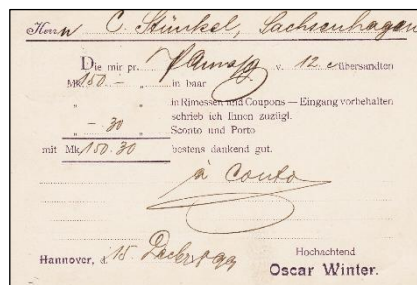 Herrn C. Stünkel, Sachsenhagen
Die mir pr. v. 12. c. übersandten
Mk. 150. — „ in baar
„ „ in Rimessen und Coupons — Eingang vorbehalten
schrieb ich Ihnen zuzügl.
„ – 30 „ Sconto und Porto
mit Mk. 150.30 bestens dankend gut.
à Conto
Hannover, d. 15. Decbr. 99
Hochachtend
Oscar Winter.